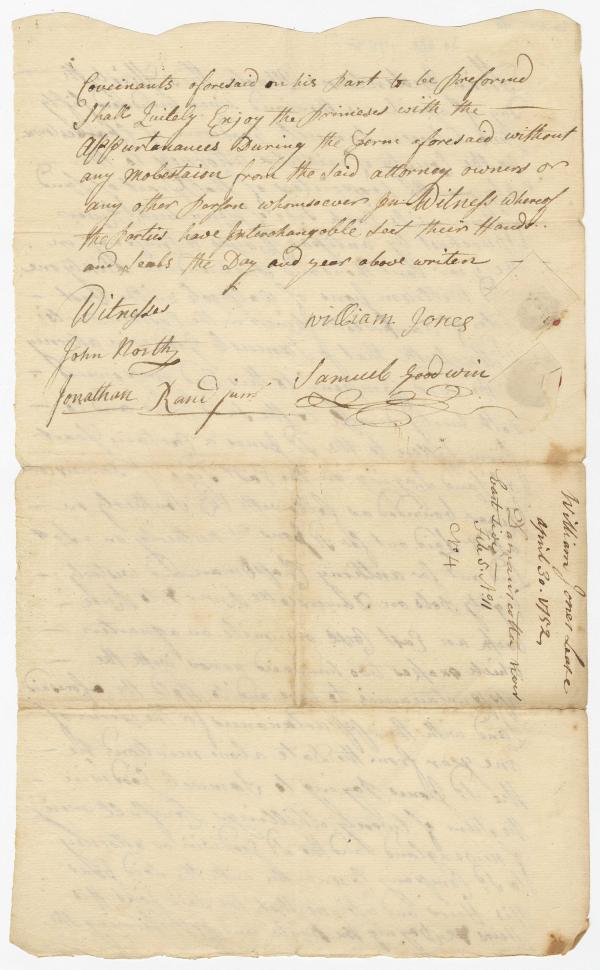 Coveinants aforesaid on his Part to be Preformed
Shall Quitely Enjoy the Primises with the
Appurtanances During the Term aforesaid without
any Mobestaion from the said attorney owners or
any other Parson whomsoever In Witness whereof
the Parties have Interchangeble Sett their Hands
and Seals the Day and year above writen
Witnesses
William Jones
John North
Samuel Goodwin
Jonathan Rand junr
William Jones Lease
April 30. 1752,
Damariscotta River
East side
File 5. No 11
No 4